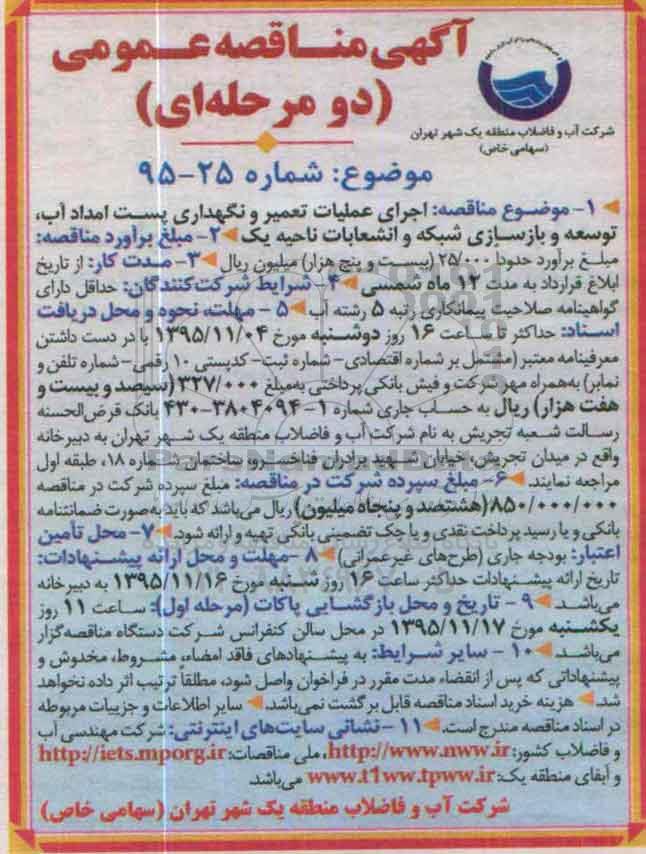 آگهی مناقصه عمومی
(دو مرحله‌ای)
شرکت آب و فاضلاب منطقه یک شهر تهران
(سهامی خاص)
موضوع: شماره ۲۵-۹۵
۱- موضوع مناقصه: اجرای عملیات تعمیر و نگهداری پست امداد آب،
توسعه و بازسازی شبکه و انشعابات ناحیه یک ۲- مبلغ برآورد مناقصه:
مبلغ برآورد حدودا ۲۵/۰۰۰ (بیست و پنج هزار) میلیون ریال ۳- مدت کار: از تاریخ
ابلاغ قرارداد به مدت ۱۲ ماه شمسی ۴- شرایط شرکت‌کنندگان: حداقل دارای
گواهینامه صلاحیت پیمانکاری رتبه ۵ رشته آب ۵- مهلت، نحوه و محل دریافت
اسناد: حداکثر تا ساعت ۱۶ روز دوشنبه مورخ ۱۳۹۵/۱۱/۰۴ با در دست داشتن
معرفینامه معتبر (مشتمل بر شماره اقتصادی- شماره ثبت- کدپستی ۱۰ رقمی- شماره تلفن و
نمابر) به‌همراه مهر شرکت و فیش بانکی پرداختی به‌مبلغ ۳۲۷/۰۰۰ (سیصد و بیست و
هفت هزار) ریال به حساب جاری شماره ۱-۳۸۰۴۰۹۴-۴۳۰ بانک قرض‌الحسنه
رسالت شعبه تجریش به نام شرکت آب و فاضلاب منطقه یک شهر تهران به دبیرخانه
واقع در میدان تجریش، خیابان شهید برادران فناخسرو، ساختمان شماره ۱۸، طبقه اول
مراجعه نمایند. ۶- مبلغ سپرده شرکت در مناقصه: مبلغ سپرده شرکت در مناقصه
۸۵۰/۰۰۰/۰۰۰ (هشتصد و پنجاه میلیون) ریال می‌باشد که باید به‌صورت ضمانتنامه
بانکی و یا رسید پرداخت نقدی و یا چک تضمینی بانکی تهیه و ارائه شود. ۷- محل تأمین
اعتبار: بودجه جاری (طرح‌های غیرعمرانی) ۸- مهلت و محل ارائه پیشنهادات:
تاریخ ارائه پیشنهادات حداکثر ساعت ۱۶ روز شنبه مورخ ۱۳۹۵/۱۱/۱۶ به دبیرخانه
می‌باشد. ۹- تاریخ و محل بازگشایی پاکات (مرحله اول): ساعت ۱۱ روز
یکشنبه مورخ ۱۳۹۵/۱۱/۱۷ در محل سالن کنفرانس شرکت دستگاه مناقصه‌گزار
می‌باشد. ۱۰- سایر شرایط: به پیشنهادهای فاقد امضاء، مشروط، مخدوش و
پیشنهاداتی که پس از انقضاء مدت مقرر در فراخوان واصل شود، مطلقا ترتیب اثر داده نخواهد
شد. هزینه خرید اسناد مناقصه قابل برگشت نمی‌باشد. سایر اطلاعات و جزییات مربوطه
در اسناد مناقصه مندرج است. ۱۱- نشانی سایت‌های اینترنتی: شرکت مهندسی آب
و فاضلاب کشور: http://www.nww.ir، ملی مناقصات: http://iets.mporg.ir
و آبفای منطقه یک: www.t1ww.tpww.ir می‌باشد.
شرکت آب و فاضلاب منطقه یک شهر تهران (سهامی خاص)